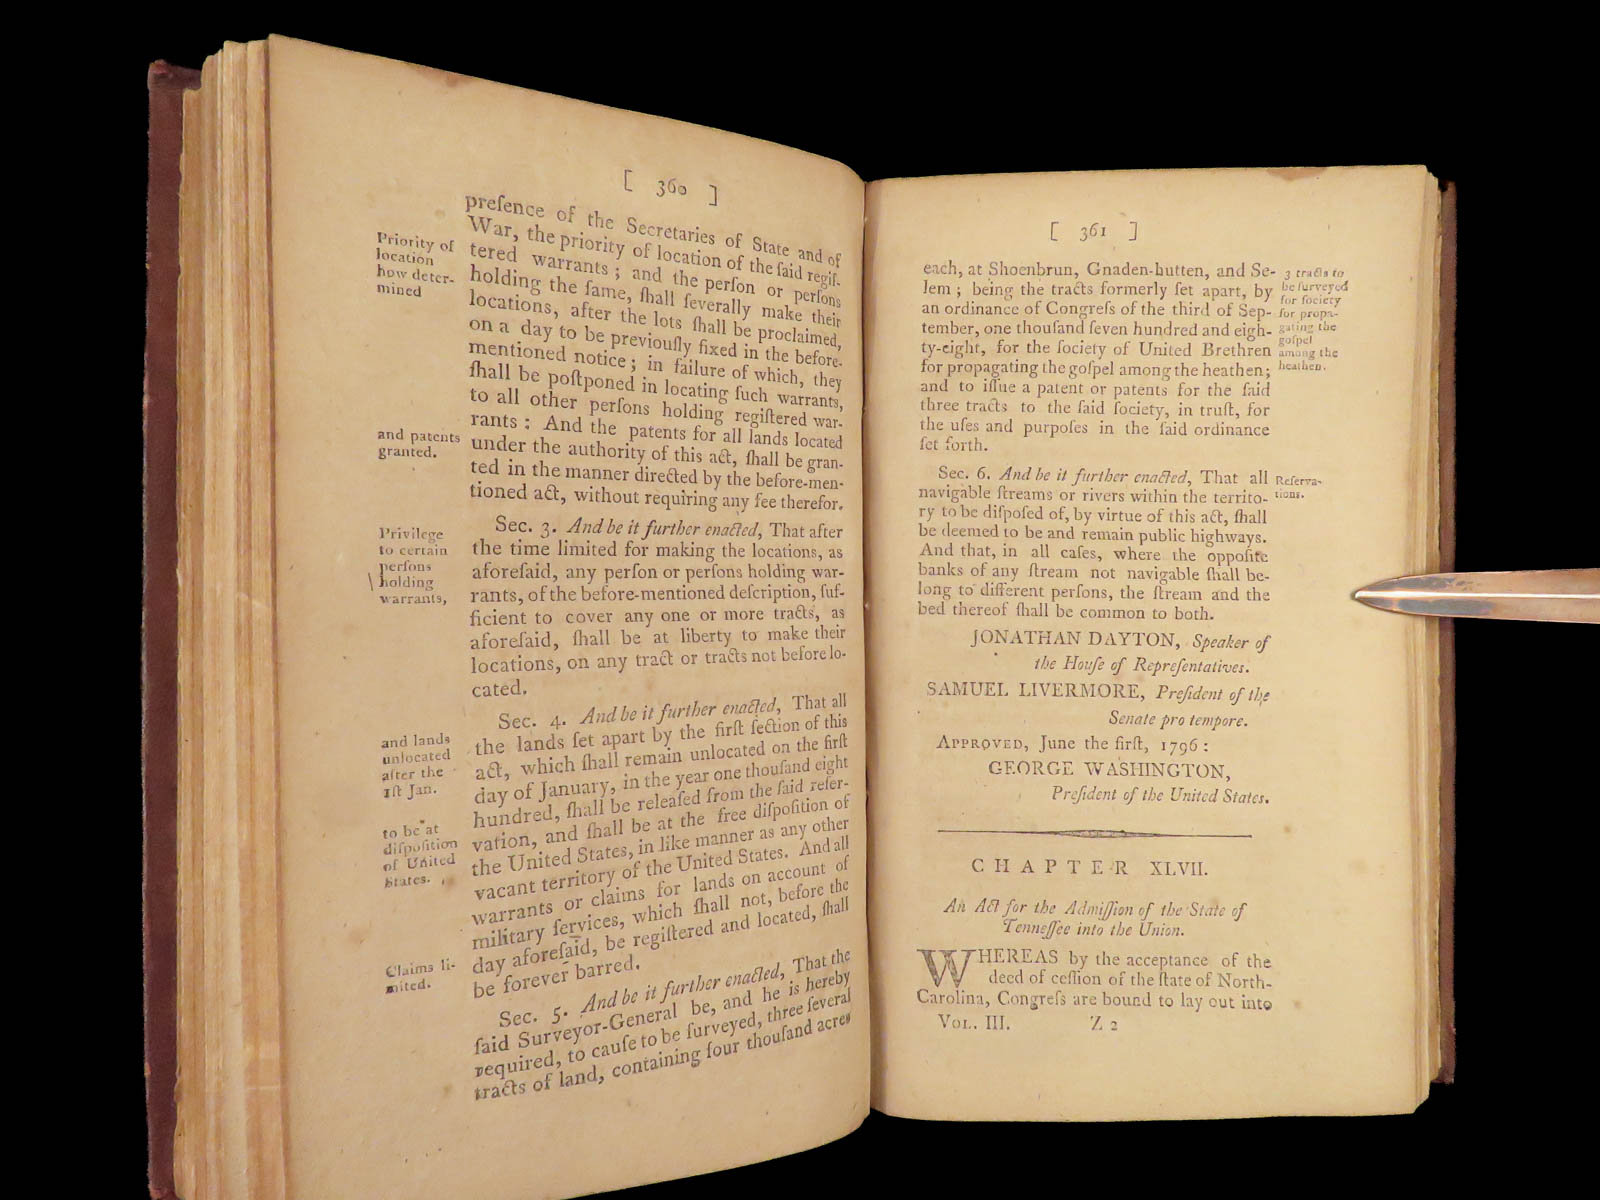 [ 360 ]
preſence of the Secretaries of State and of
War, the priority of location of the ſaid regiſ-
tered warrants; and the perſon or perſons
holding the ſame, ſhall ſeverally make their
locations, after the lots ſhall be proclaimed,
on a day to be previouſly fixed in the before-
mentioned notice; in failure of which, they
ſhall be poſtponed in locating ſuch warrants,
to all other perſons holding regiſtered war-
rants: And the patents for all lands located
under the authority of this act, ſhall be gran-
ted in the manner directed by the before-men-
tioned act, without requiring any fee therefor.
Priority of
location
how deter-
mined
and patents
granted.
Sec. 3. And be it further enacted, That after
the time limited for making the locations, as
aforeſaid, any perſon or perſons holding war-
rants, of the before-mentioned deſcription, ſuf-
ficient to cover any one or more tracts, as
aforeſaid, ſhall be at liberty to make their
locations, on any tract or tracts not before lo-
cated.
Privilege
to certain
perſons
holding
warrants,
Sec. 4. And be it further enacted, That all
the lands ſet apart by the firſt ſection of this
act, which ſhall remain unlocated on the firſt
day of January, in the year one thouſand eight
hundred, ſhall be releaſed from the ſaid reſer-
vation, and ſhall be at the free diſpoſition of
the United States, in like manner as any other
vacant territory of the United States. And all
warrants or claims for lands on account of
military ſervices, which ſhall not, before the
day aforeſaid, be regiſtered and located, ſhall
be forever barred.
and lands
unlocated
after the
1ſt Jan.
to be at
diſpoſition
of United
States.
Claims li-
mited.
Sec. 5. And be it further enacted, That the
ſaid Surveyor-General be, and he is hereby
required, to cauſe to be ſurveyed, three ſeveral
tracts of land, containing four thouſand acres
[ 361 ]
each, at Shoenbrun, Gnaden-hutten, and Se-
lem; being the tracts formerly ſet apart, by
an ordinance of Congreſs of the third of Sep-
tember, one thouſand ſeven hundred and eigh-
ty-eight, for the ſociety of United Brethren
for propagating the goſpel among the heathen;
and to iſſue a patent or patents for the ſaid
three tracts to the ſaid ſociety, in truſt, for
the uſes and purpoſes in the ſaid ordinance
ſet forth.
3 tracts to
be ſurveyed
for ſociety
for propa-
gating the
goſpel
among the
heathen.
Sec. 6. And be it further enacted, That all
navigable ſtreams or rivers within the territo-
ry to be diſpoſed of, by virtue of this act, ſhall
be deemed to be and remain public highways.
And that, in all caſes, where the oppoſite
banks of any ſtream not navigable ſhall be-
long to different perſons, the ſtream and the
bed thereof ſhall be common to both.
Reſerva-
tions.
JONATHAN DAYTON, Speaker of
the Houſe of Repreſentatives.
SAMUEL LIVERMORE, Preſident of the
Senate pro tempore.
APPROVED, June the firſt, 1796:
GEORGE WASHINGTON,
Preſident of the United States.
CHAPTER XLVII.
An Act for the Admiſſion of the State of
Tenneſſee into the Union.
WHEREAS by the acceptance of the
deed of ceſſion of the ſtate of North-
Carolina, Congreſs are bound to lay out into
VOL. III. Z 2